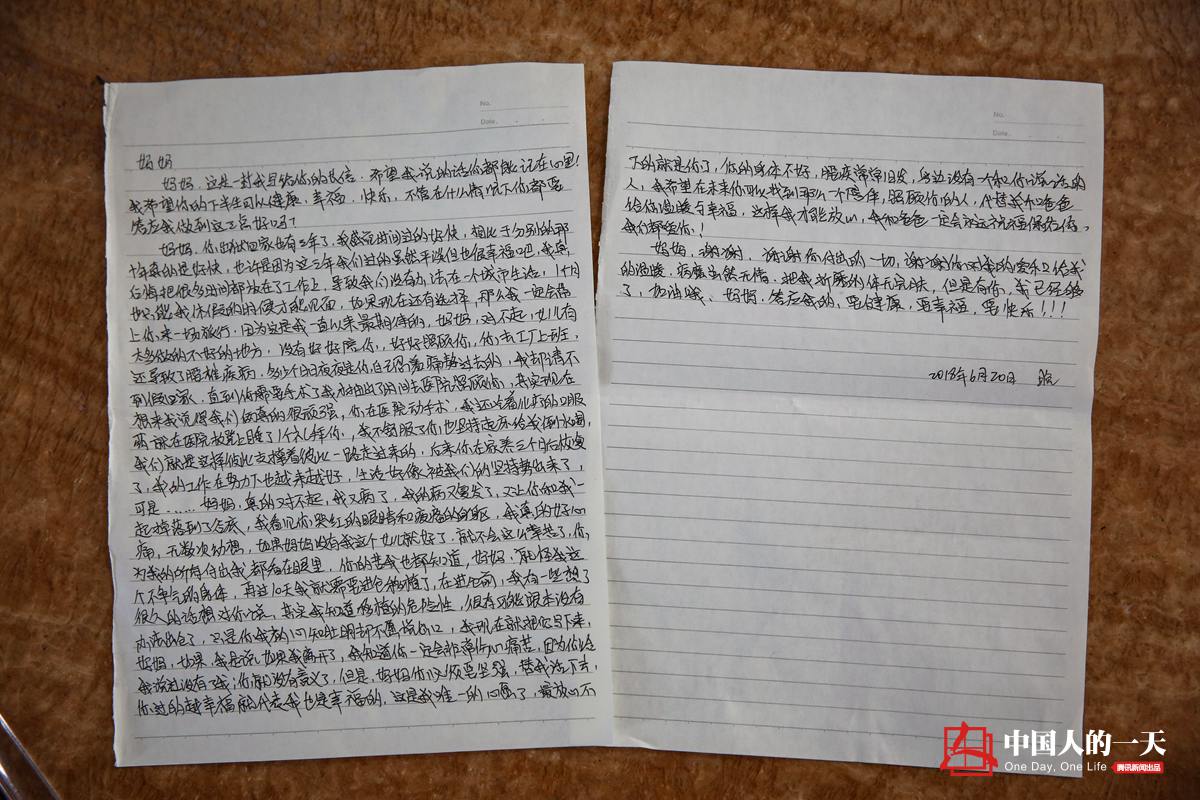 No.
Date.
妈妈
妈妈，这是一封我写给你的长信，希望我说的话你都能记在心里！
我希望你的下半生可以健康，幸福，快乐，不管在什么情况下你都要
答应我做到这三点好吗？
妈妈，你 回家也有三年了，我感觉时间过的好快，相比于分别的那
十年真的过好快，也许是因为这三年我们过的虽然平淡但也很幸福吧，我真
后悔把很多时间都放在了工作上，导致我们没有办法在一个城市生活，1个月
也只能我休假的时候才能见面，如果现在还有选择，那么我一定会带
上你来一场旅行，因为这是我一直以来最期待的，妈妈，对不起，女儿有
太多做的不好的地方，没有好好陪你，好好照顾你，你去工厂上班，
还导致了腰椎疾病，多少个日日夜夜是你自己忍着痛熬过去的，我却请不
到假回家，直到你需要手术了我才抽出了时间去医院照顾你，其实现在
想来我觉得我们俩真的很顽强，你在医院动手术，我还吃着化疗的口服
药 在医院 上睡了1个 你，我不舒服了你也坚持起床给我倒水喝，
我们就是这样彼此支撑着彼此一路走过来的，后来你在家养三个月后恢复
了，我的工作在努力下也越来越好，生活好像被我们的坚持 出来了，
可是……妈妈，真的对不起，我又病了，我的病又复发了，又让你和我一
起掉落到了谷底，我看见你哭红的眼睛和疲惫的身躯，我真的好心
痛，无数次幻想，如果妈妈没有我这个女儿就好了，就不会这么辛苦了，你
为我的所有付出我都看在眼里，你的苦我也都知道，妈妈，只能怪我这
个不争气的身体，再过10天我就需要进仓移植了，在进仓前，我有一些想了
很久的话想对你说，其实我知道移植的危险性，很有可能跟本没有
办法出仓了，只是你我都心知肚明却不愿说出口，我现在就想把它写下来，
妈妈，如果，我是说，如果我离开了，我知道你一定会非常伤心痛苦，因为你 
我说过没有了我，你就没有意义了，但是，妈妈你必须要坚强，替我活下去，
你过的越幸福就代表我也是幸福的，这是我唯一的心愿了，最放心不
No.
Date.
下的就是你了，你的身体不好，腰疾常常旧发，身边没有一个和你说说话的
人，我希望在未来你可以找到那么一个陪伴，照顾你的人，代替我和爸爸
给你温暖与幸福，这样我才能放心，我和爸爸一定会永远祝福保佑你，
我们都爱你！
妈妈，谢谢，谢谢你付出的一切，谢谢你对我的爱和给我
的温暖，病魔虽然无情，把我折磨的体无完肤，但是有你，我已经够
了，加油哦，妈妈，答应我的，要健康，要幸福，要快乐！！！
2018年6月20日
中国人的一天
One Day, One Life
腾讯新闻出品